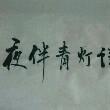 夜伴青灯